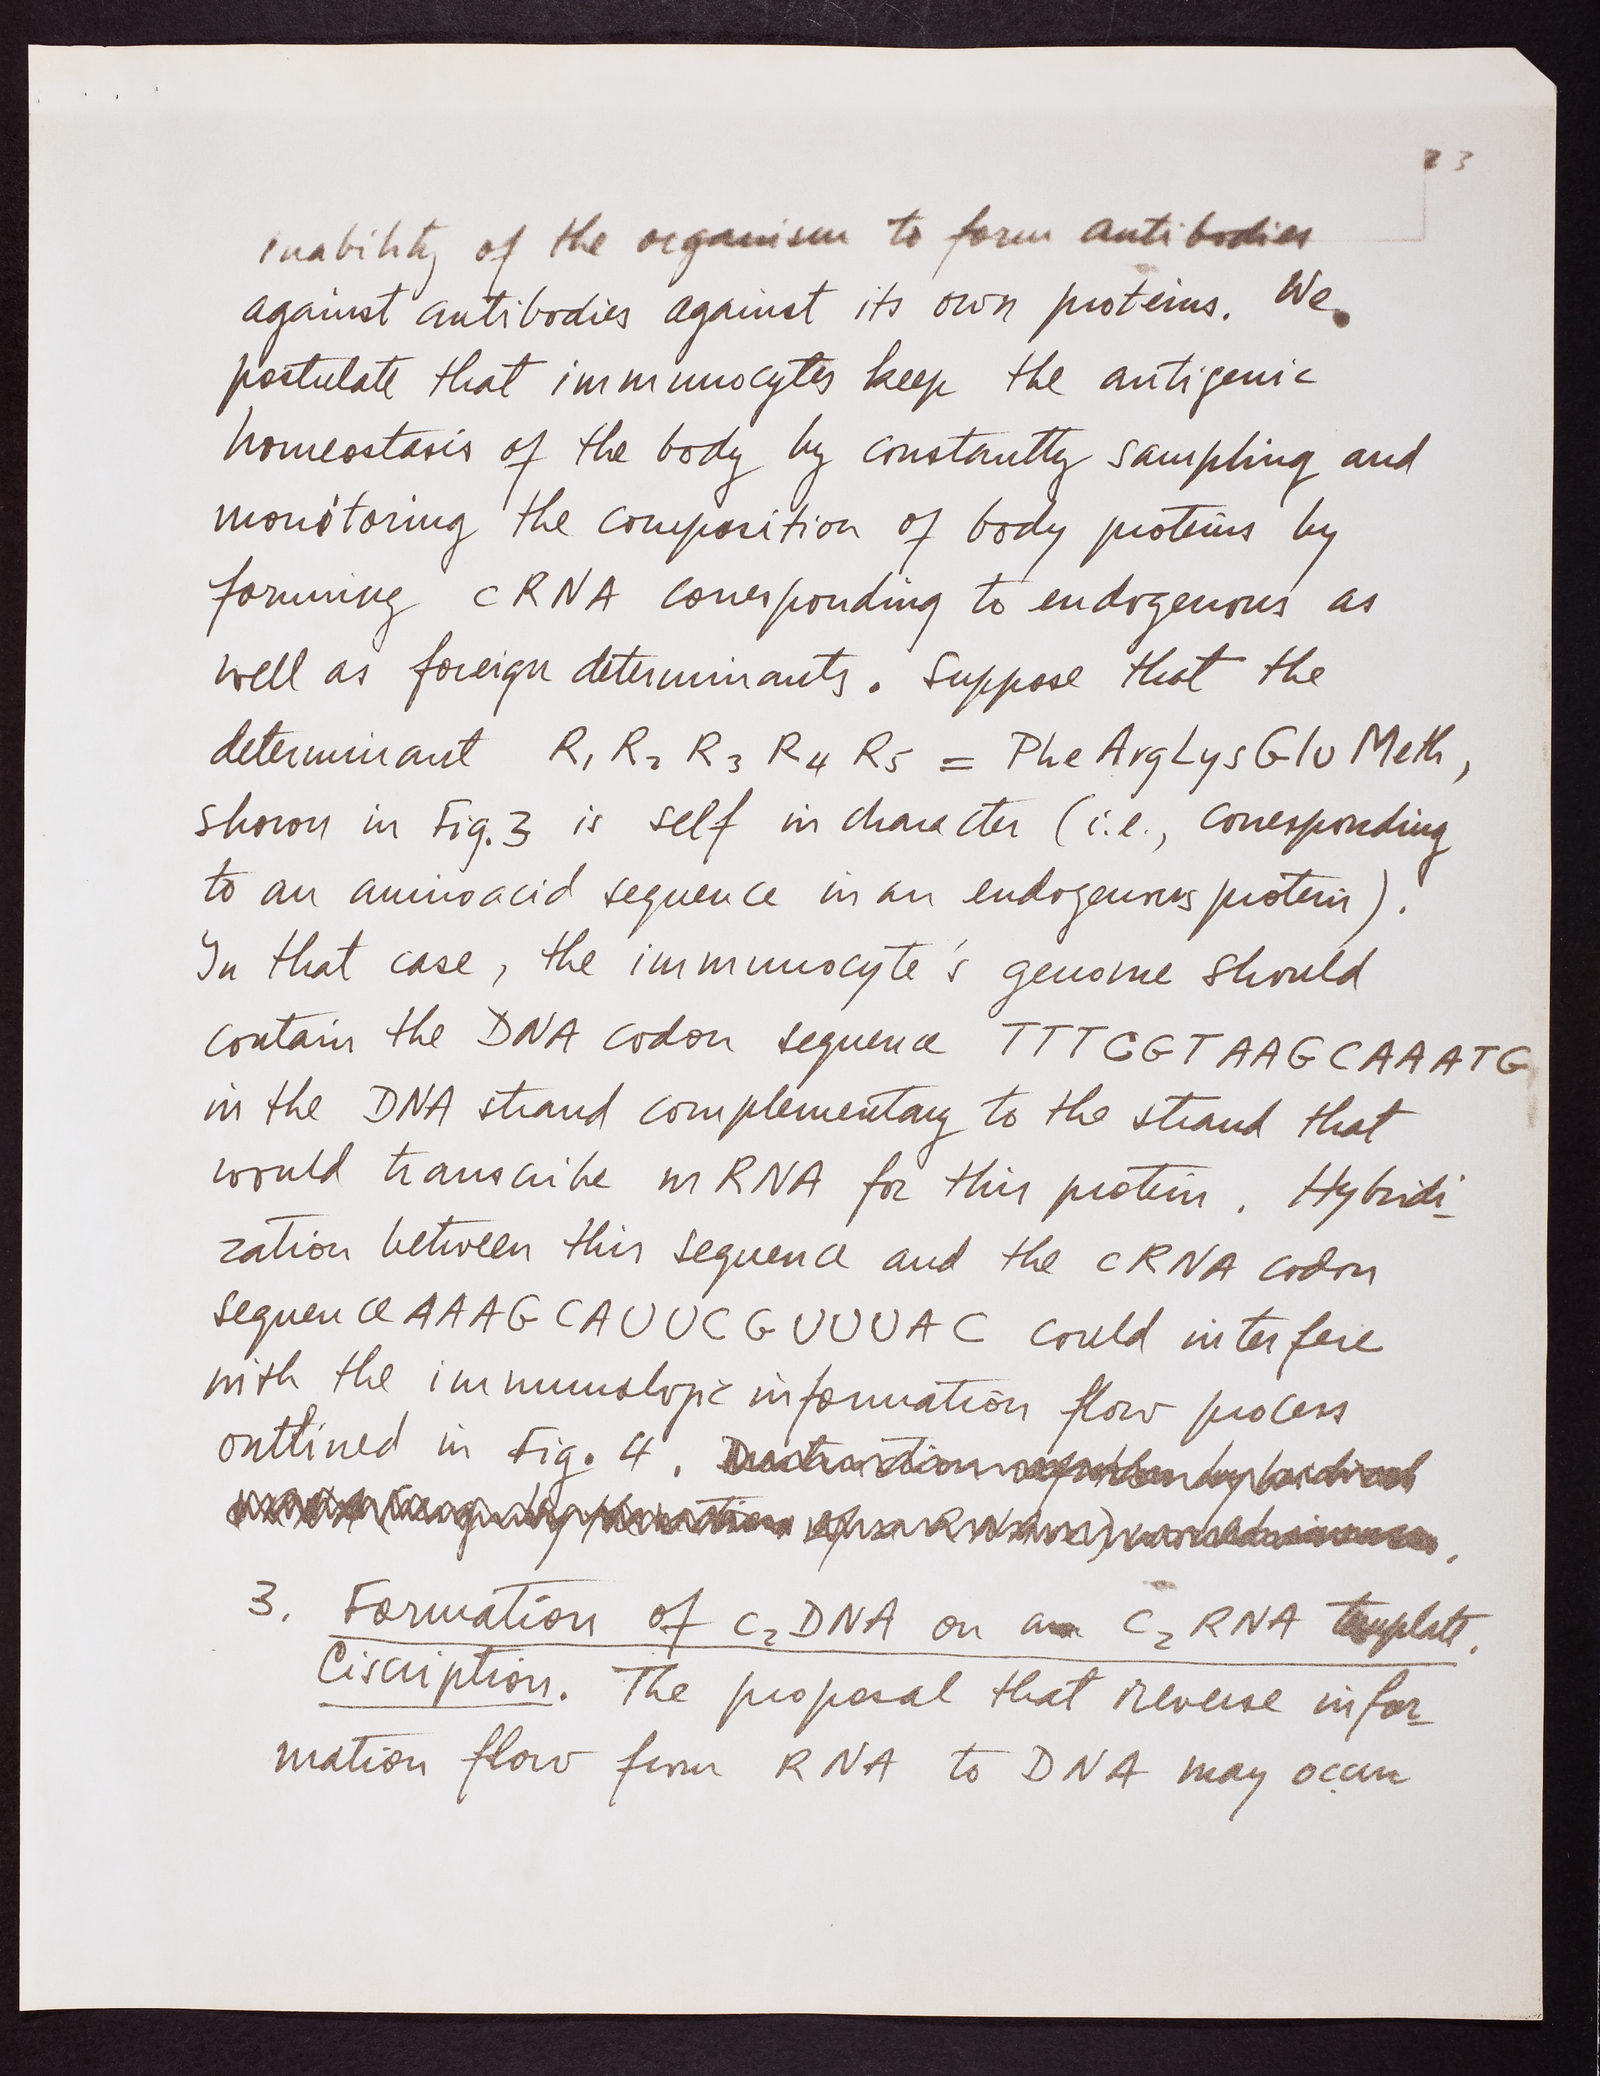 23
inability of the organism to form antibodies
against antibodies against its own proteins. We
postulate that immunocytes keep the antigenic
homeostasis of the body by constantly sampling and
monitoring the composition of body proteins by
forming cRNA corresponding to endogenous as
well as foreign determinants. Suppose that the
determinant R₁ R₂ R₃ R₄ R₅ = Phe Arg Lys Glu Meth,
shown in Fig. 3 is self in character (i.e., corresponding
to an aminoacid sequence in an endogenous protein).
In that case, the immunocyte's genome should
contain the DNA codon sequence TTTCGTAAGCAAATG
in the DNA strand complementary to the strand that
would transcribe mRNA for this protein. Hybridi-
zation between this sequence and the cRNA codon
sequence AAAGCAUUCGUUUAC could interfere
with the immunologic information flow process
outlined in Fig. 4.
3. Formation of c₂DNA on a c₂RNA template.
Ciscription. The proposal that reverse infor-
mation flow from RNA to DNA may occur